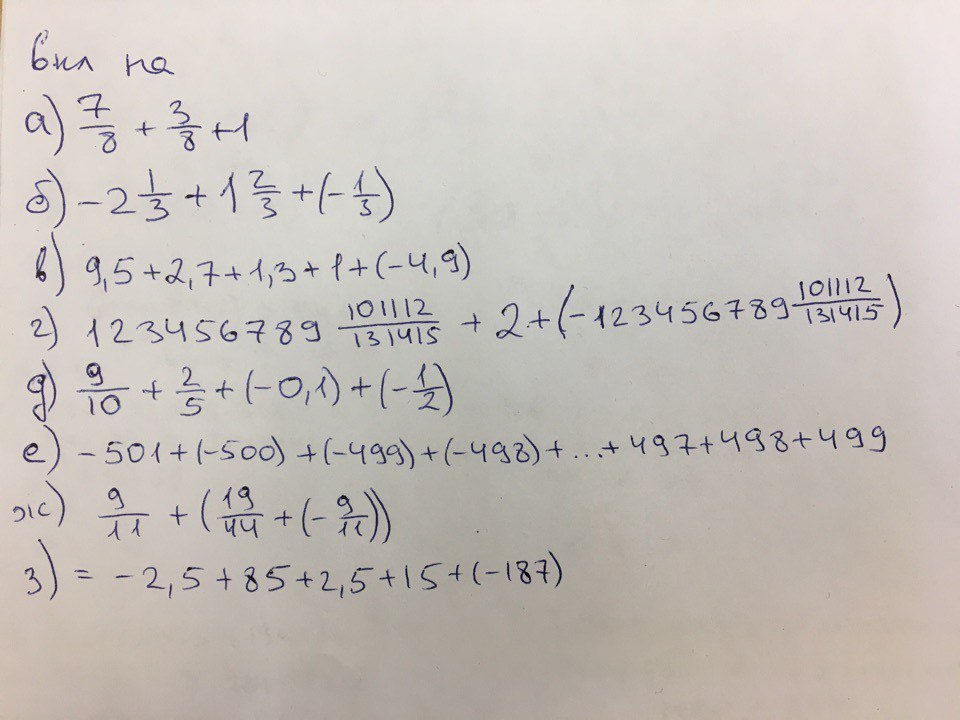 вкл на
а) 7/8 + 3/8 + 1
б) -2 1/3 + 1 2/3 + (-1/3)
в) 9,5 + 2,7 + 1,3 + 1 + (-4,9)
г) 123456789 101112/131415 + 2 + (-123456789 101112/131415)
д) 9/10 + 2/5 + (-0,1) + (-1/2)
е) -501 + (-500) + (-499) + (-498) + ... + 497 + 498 + 499
ж) 9/11 + (19/44 + (-9/11))
з) = -2,5 + 85 + 2,5 + 15 + (-187)